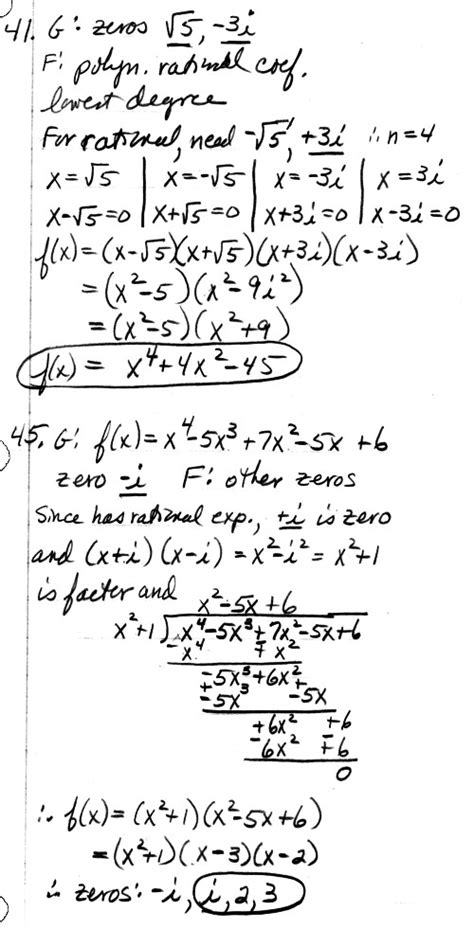 41. G: zeros √5, -3i
F: polyn. rational coef.
lowest degree
For rational, need -√5, +3i ∴ n=4
x=√5 | x=-√5 | x=-3i | x=3i
x-√5=0 | x+√5=0 | x+3i=0 | x-3i=0
f(x)=(x-√5)(x+√5)(x+3i)(x-3i)
=(x²-5)(x²-9i²)
=(x²-5)(x²+9)
f(x)= x⁴+4x²-45
45. G: f(x)=x⁴-5x³+7x²-5x+6
zero -i F: other zeros
Since has rational exp., +i is zero
and (x+i)(x-i)=x²-i²=x²+1
is factor and x²-5x+6
x²+1) x⁴-5x³+7x²-5x+6
-x⁴ ∓ x²
-5x³+6x²
+-5x³ +-5x
+6x² +6
-6x² ∓6
0
∴ f(x)=(x²+1)(x²-5x+6)
=(x²+1)(x-3)(x-2)
∴ zeros: -i, i, 2, 3